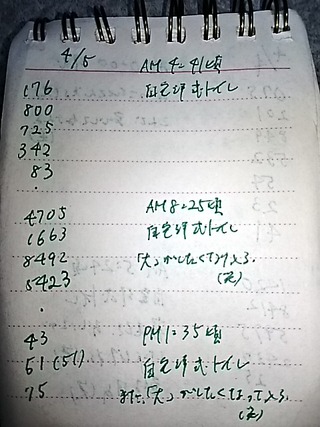 4/5 AM 4:41頃
176 自宅洋式トイレ
800
725
342
83
.
4705 AM 8:25頃
1663 自宅洋式トイレ
8492 「大」がしたくて入る.
5423 (定)
.
43 PM 1:35頃
51(51) 自宅洋式トイレ
75 また、「大」がしたくなって入る.